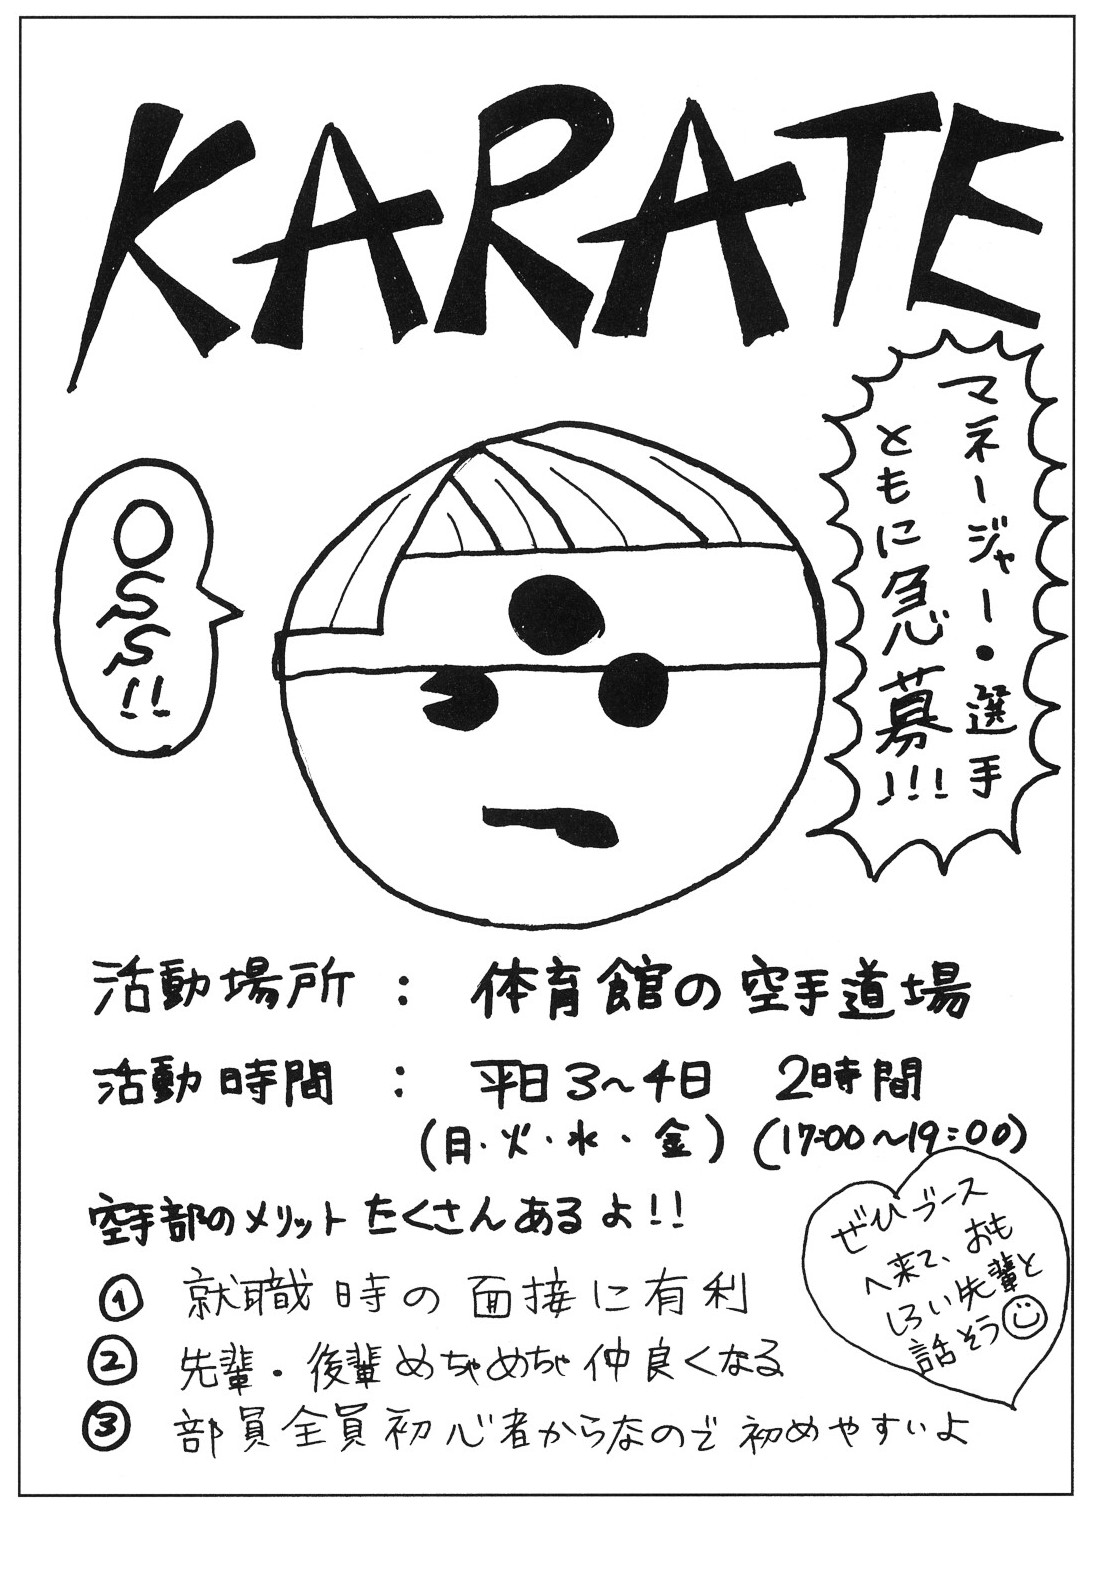 KARATE
マネージャー・選手
ともに急募!!!
OSS!!
活動場所 : 体育館の空手道場
活動時間 : 平日3~4日 2時間
(月・火・水・金) (17:00~19:00)
空手部のメリットたくさんあるよ!!
① 就職時の面接に有利
② 先輩・後輩めちゃめちゃ仲良くなる
③ 部員全員初心者からなので初めやすいよ
ぜひブース
へ来て、おも
しろい先輩と
話そう